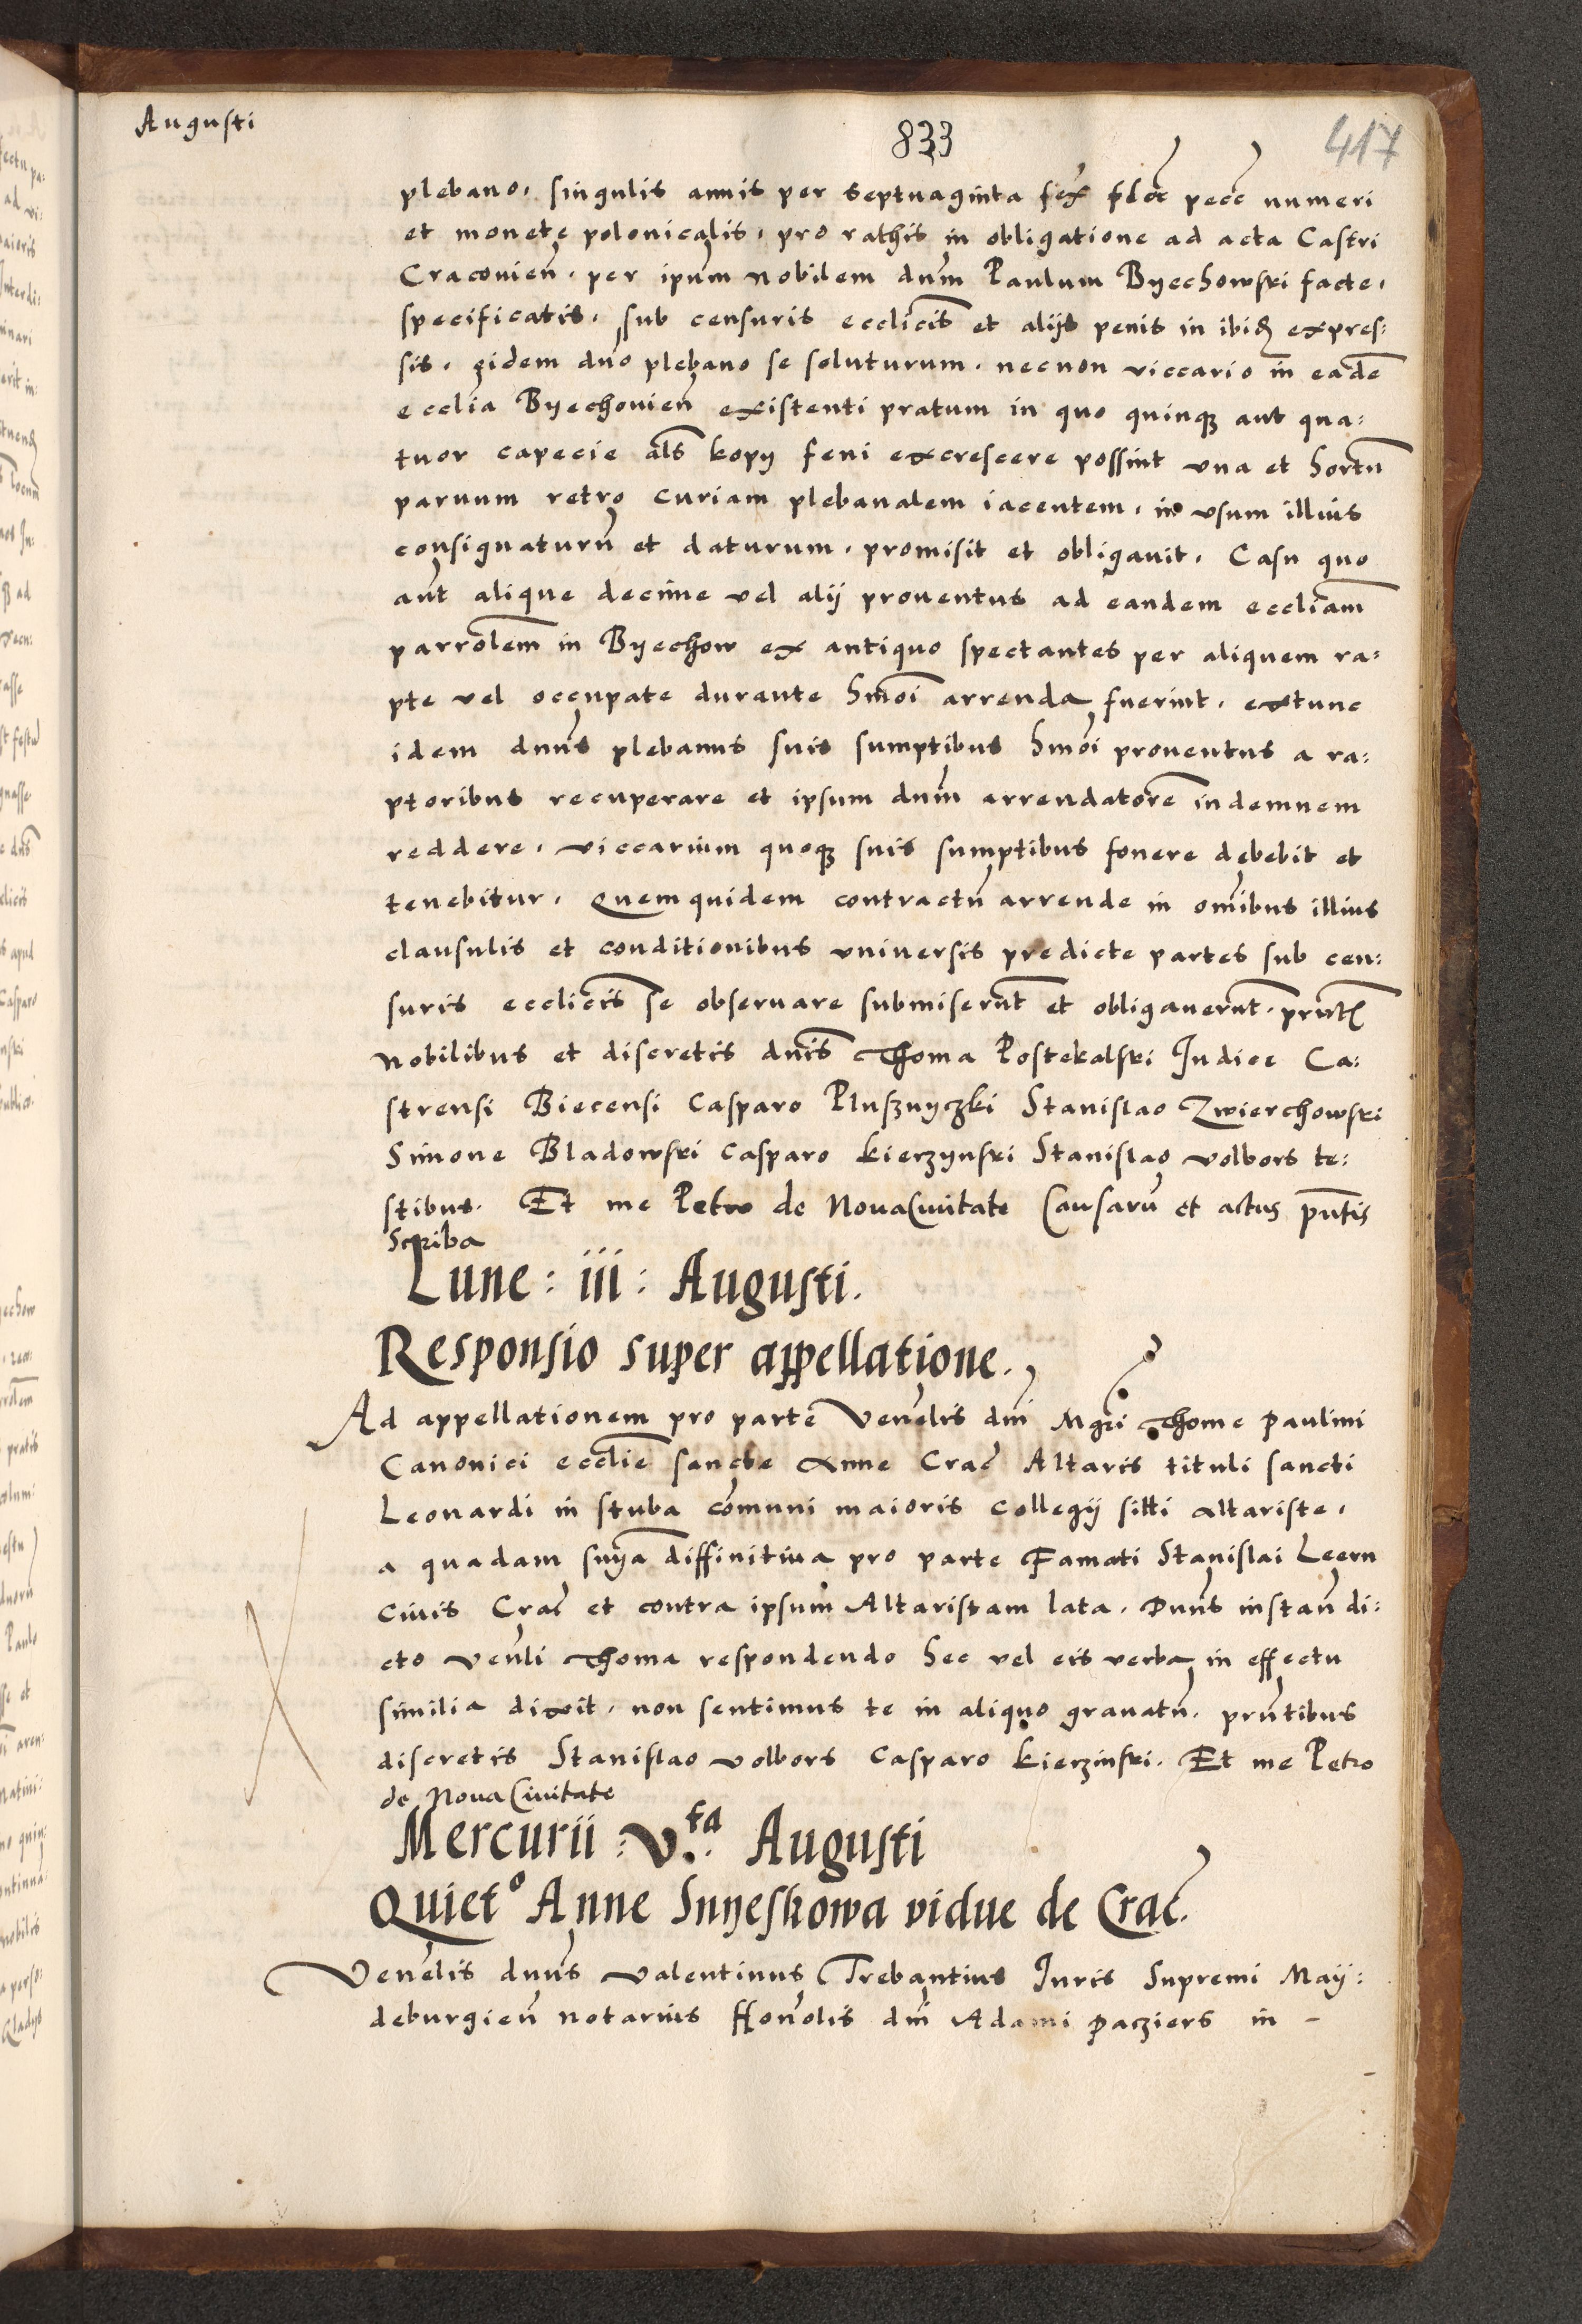 Augusti
833
417
plebano. singulis annis per septuaginta pecc numeri
et monete polonicalis. pro rathis in obligatione ad acta Castri
Craconien̄. per ipūm nobilem dnm̄ Paulum Byechowski facte.
specificatis. sub censuris ecclicīs et alijs penis in ibiꝺ expres:
sis. eidem dn̄o plebano se soluturum. necnon viccario in eadē
ecclīa Byechouien̄ existenti pratum in quo quinqꝫ aut qua:
tuor capecie als̄ kopy feni excrescere possint vna et hortū
paruum retro curiam plebanalem iacentem. in vsum illius
consignaturū et daturum. promisit et obligauit. Casu quo
aūt alique decime vel alij prouentus ad eandem eccliam̄
parrolem̄ in Byechow ex antiquo spectantes per aliquem ra:
pte vel occupate durante hmōi arrenda fuerint. extunc
idem dnūs plebanus suis sumptibus hmōi prouentus a ra:
ptoribus recuperare et ipsum dnm̄ arrendatorē indemnem
reddere. viccarium quoqꝫ suis sumptibus fouere debebit et
tenebitur. Quemquidem contractū arrende in om̄ibus illius
clausulis et conditionibus vniuersis predicte partes sub cen:
suris ecclicīs se obseruare submiserūt et obligauerūt. prn̄tꝭ
nobilibus et discretis dnīs Thoma Postekalski Iudice Ca:
strensi Biecensi Casparo Plusznyczki Stanislao Zwierchowski
Simone Bladowski Casparo Kierzynski Stanislao volbors te:
stibus. Et me Petro de NouaCiuitate Causarū et actus pn̄tis
Scriba
Lune: iii: Augusti.
Responsio super appellatione.
Ad appellationem pro parte Venēlis dnī Mgrī Thome Paulini
Canonici ecclīe sancte Anne Crac̄ Altaris tituli sancti
Leonardi in stuba cōmuni maioris Collegij siti Altariste.
a quadam snīa diffinitiua pro parte Famati Stanislai Leern
Ciuis Crac̄ et contra ipsum Altaristam lata. Dnūs instan̄ di:
cto Venēli Thoma respondendo hec vel eis verba in effectu
similia dixit. non sentimus te in aliquo grauatū. prn̄tibus
discretis Stanislao volbors Casparo Kierzinski. Et me Petro
de NouaCiuitate
Mercurii: v.ta Augusti
Quiet° Anne Snyeskowa vidue de Crac̄.
Venēlis dnūs Valentinus Trebantius Iuris Supremi May:
deburgien̄ notarius Honōlis dnī Adami Pacziers in -